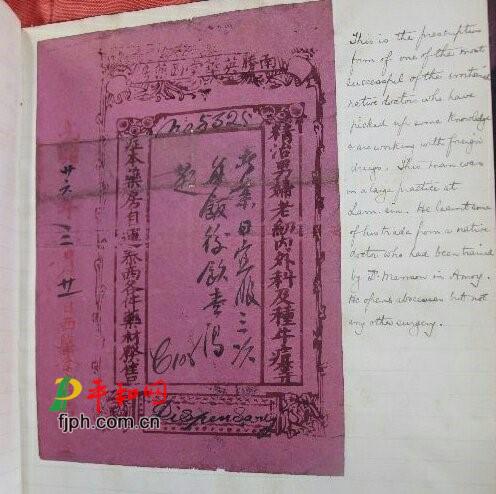 No 5328
精治男婦老幼內外科及種牛痘
此藥日宜服三次
每飯後飲壹湯
匙
在本藥房自運泰西各件藥材發售
Dispensary
廿六年三月廿日西醫
This is the prescription
form of one of the most
successful of the
native doctors who have
picked up some knowledge
& are working with foreign
drugs. This man was
in a large practice at
Lam-sin. He learnt some
of his trade from a native
doctor who had been trained
by Dr Manson in Amoy.
He opens abscesses but not
any other surgery.
平和网
fjph.com.cn